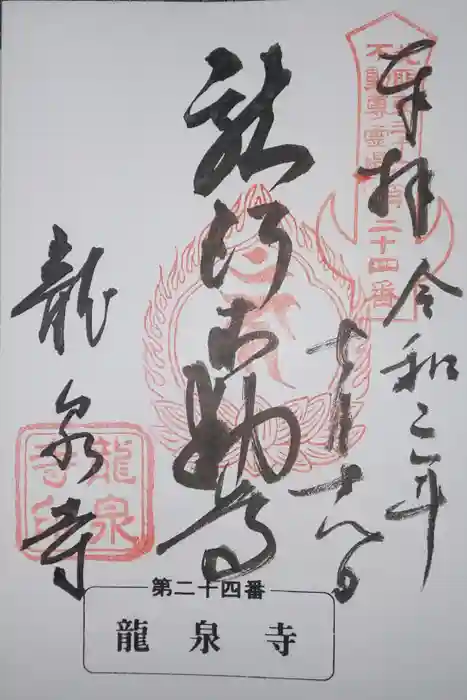 奉拝
令和二年
十八日
不動尊
龍泉寺
北関東三十六
不動尊霊場
第二十四番
龍泉
寺印
第二十四番
龍泉寺